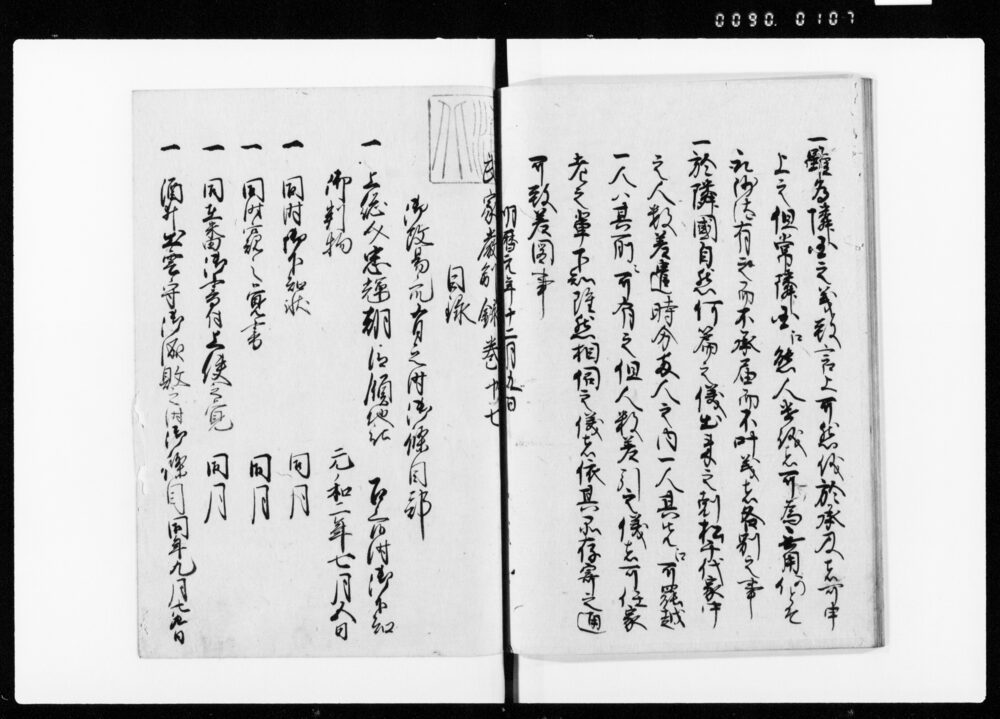 0090. 0107
一雖為隣国之義致言上可然儀於承及者可申
上之但常隣国江然人遣儀者可為無用
有之而不承届而不叶義者各別之事
一於隣國自然何篇之儀出来之刻松千代家中
之人数差遣時分両人之内一人其元江可罷越
一人ハ其所ニ可有之但人数差引之儀者可任家
老之輩下知雖然相伺之儀者依其品存寄之通
可致差図事
明暦元年十二月九日
武家嚴制録巻十七
目録
御改易元有之時御條目部
一 上総介忠輝朝臣領地江 御下知
御判物 元和二年七月八日
一 同時御下知状 同月
一 同時之覚書 同月
一 同御書付上使之覚 同月
一 酒井出雲守御成敗之時御條目 同年九月七日